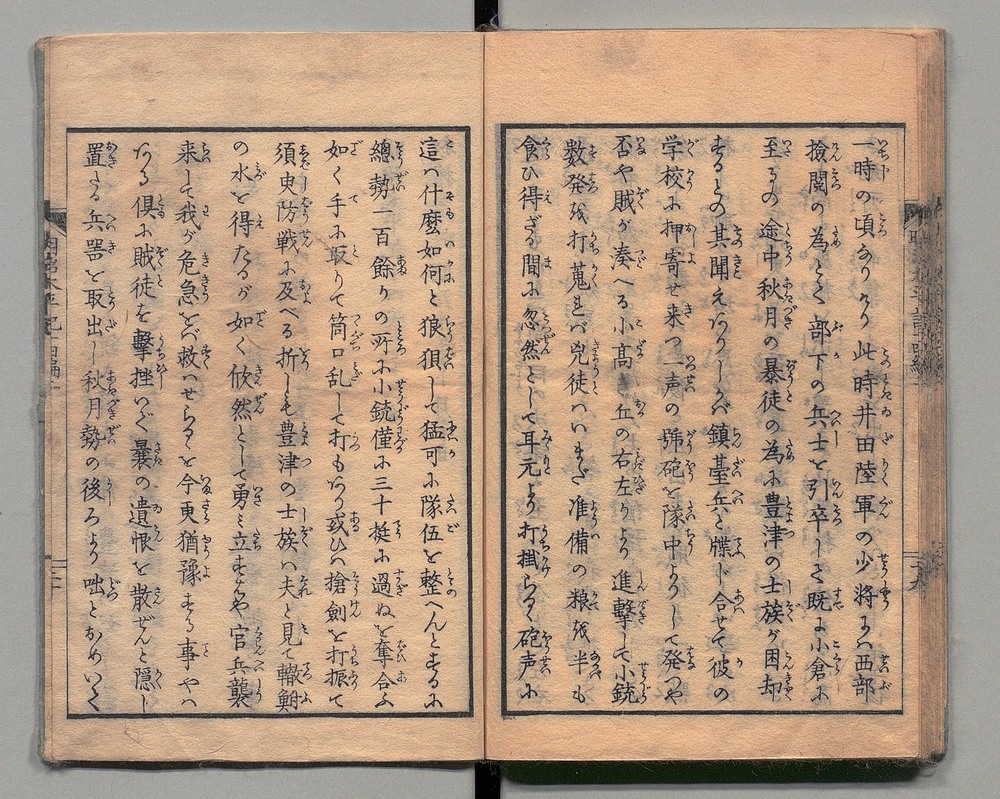 一時の頃なりけり此時井田陸軍の少将にハ西部
撿閲の為とて部下の兵士を引卒して既に小倉に
至るの途中秋月の暴徒の為に豊津の士族が困却
するとの其聞えありしかバ鎮䑓兵と牒じ合せて彼の
学校に押寄せ来つ一声の號砲を隊中よりして発つや
否や賊が湊へる小髙き丘の右左りより進撃して小銃
数発を打蒐れバ兇徒ハいまだ准備の粮を半も
食ひ得ざる間に忽然として耳元より打掛らるゝ砲声に
這ハ什麼如何と狼狽して猛可に隊伍を整へんとするに
總勢一百餘りの所に小銃僅に三十挺に過ぬを奪合ふ
如く手に取りて筒口乱して打もあり或ひハ搶劍を打振て
須臾防戦に及べる折しも豊津の士族ハ夫と見て轍鮒
の水を得たるが如く欣然として勇ミ立すハや官兵襲
来して我が危急をバ救ハせらるゝを今更猶豫する事やハ
ある倶に賊徒を擊挫いて曩の遺恨を散ぜんと隱し
置たる兵噐を取出し秋月勢の後ろより咄とおめいて